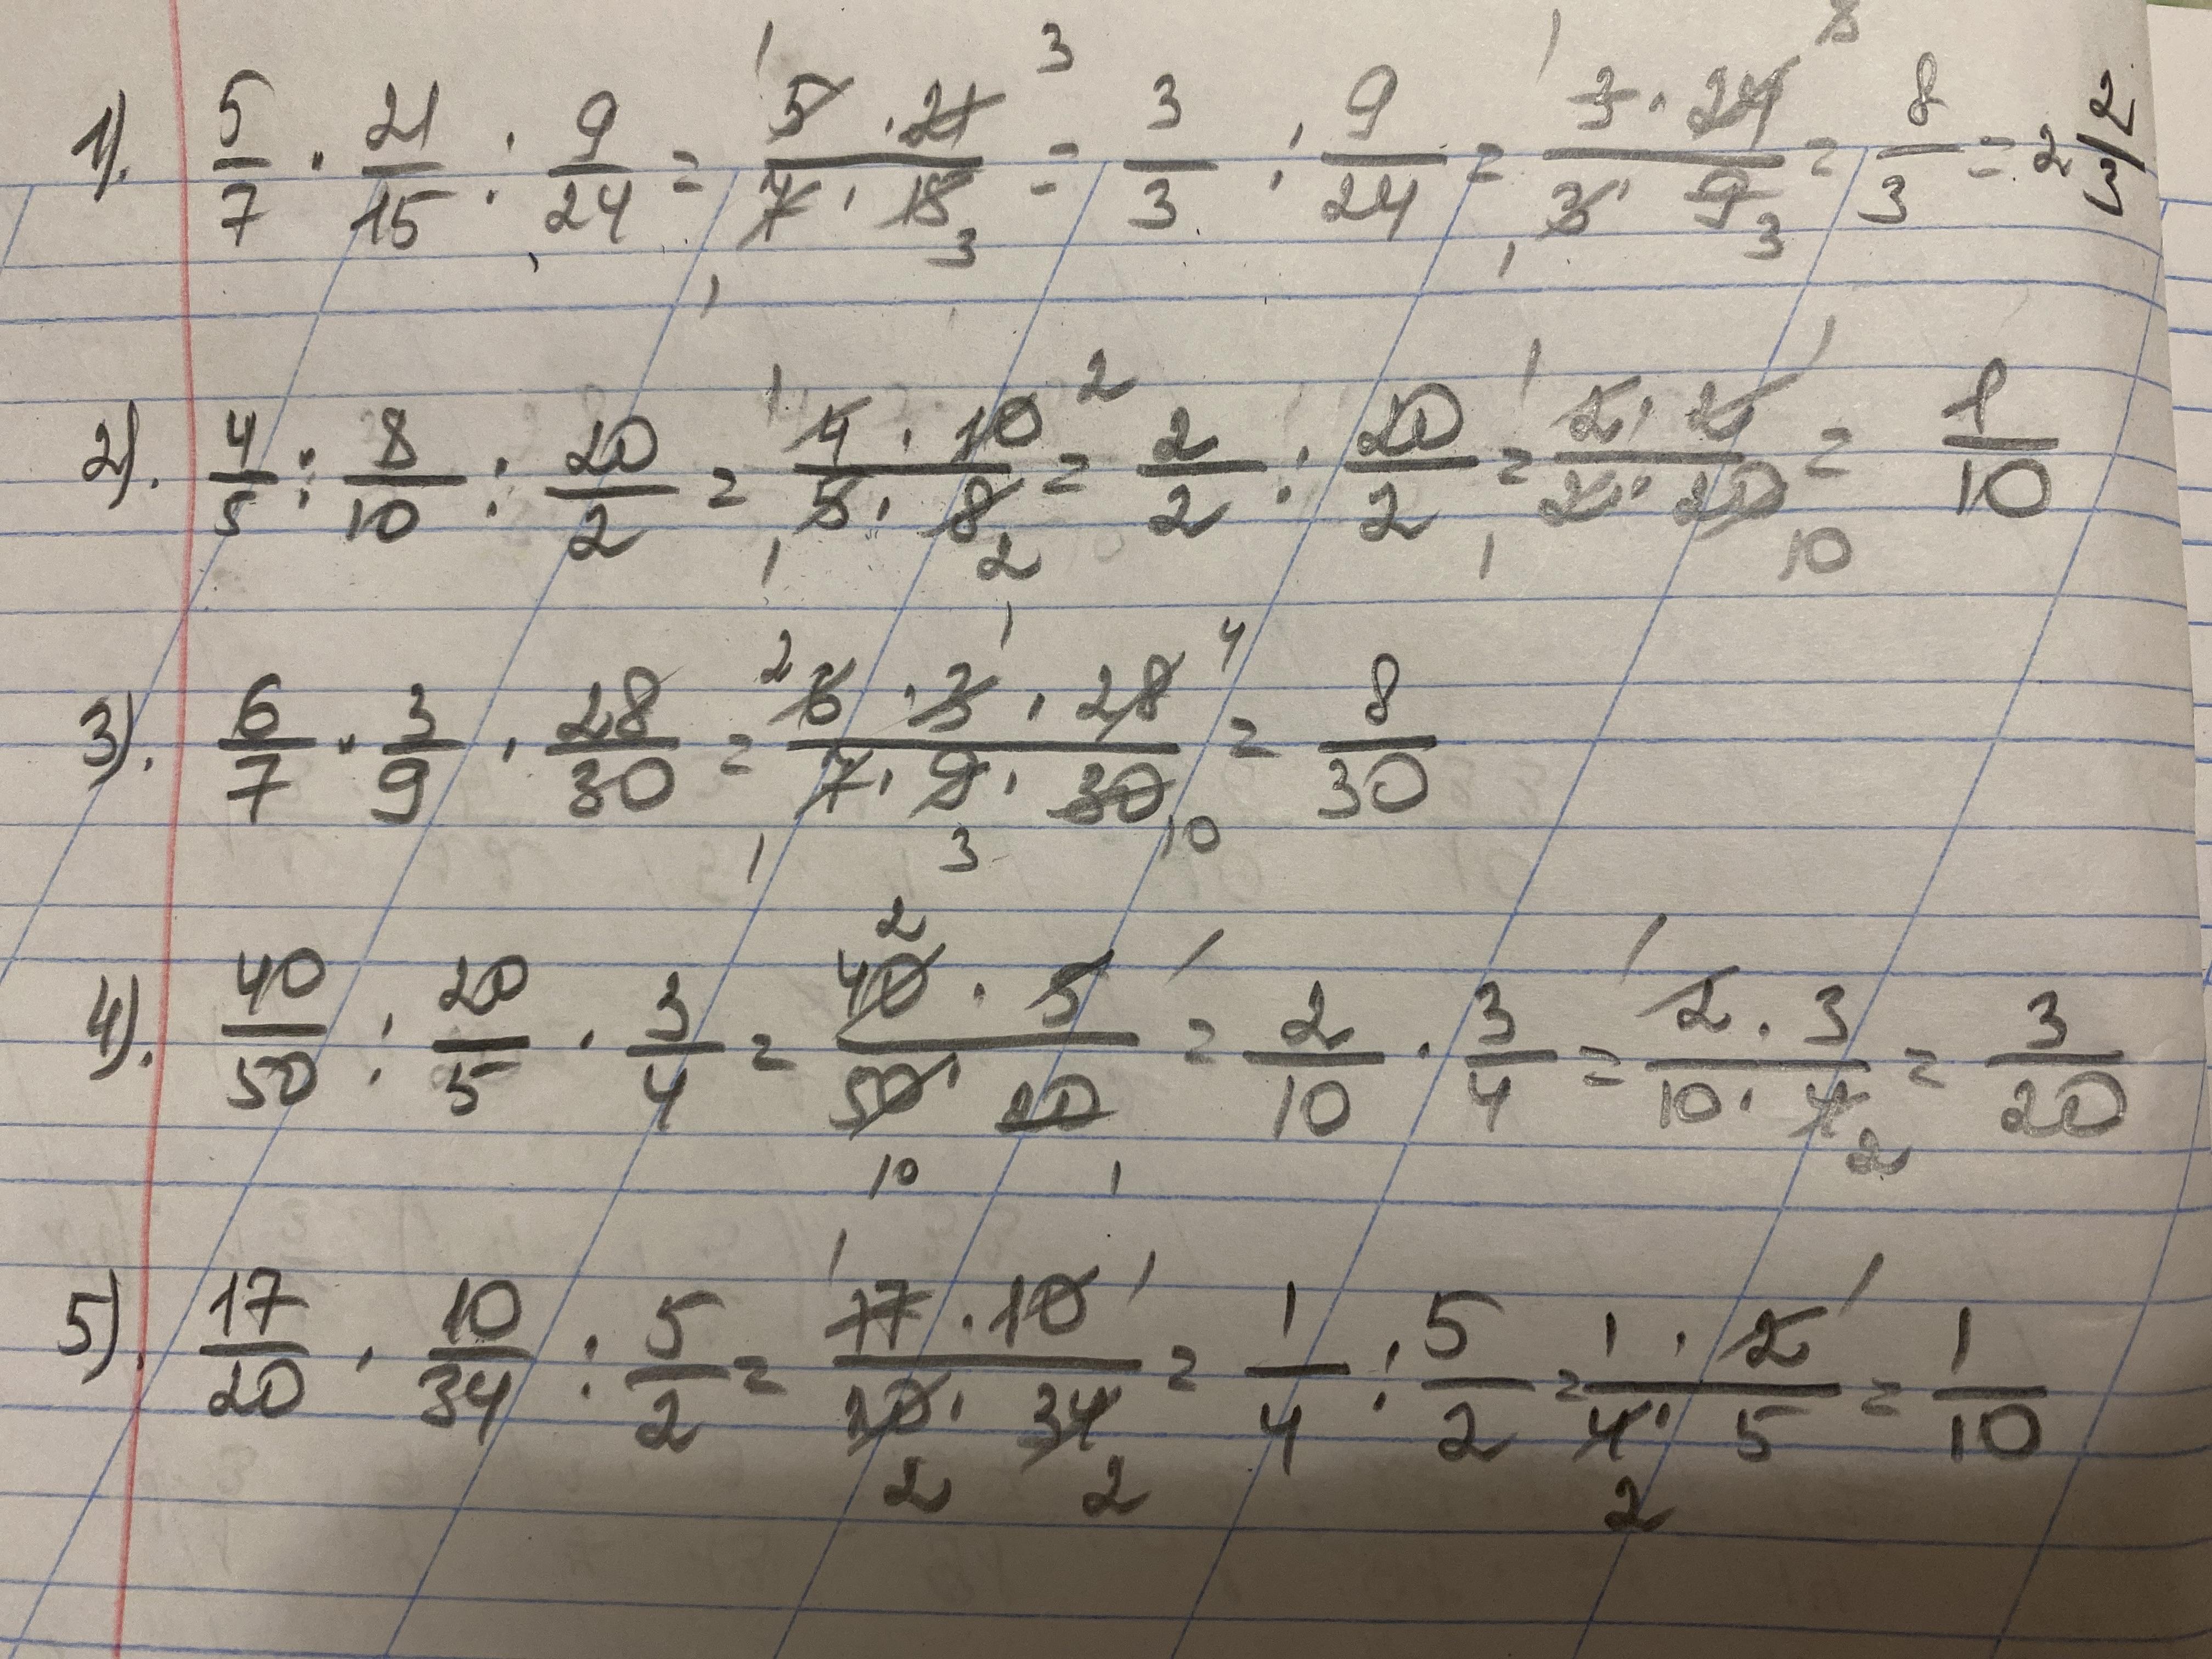 1). 5/7 · 21/15 : 9/24 = 5 · 21 / 7 · 15 = 3/3 : 9/24 = 3 · 24 / 3 · 9 = 8/3 = 2 2/3
2). 4/5 : 8/10 : 20/2 = 4 · 10 / 5 · 8 = 2/2 : 20/2 = 2 · 2 / 2 · 20 = 1/10
3). 6/7 · 3/9 · 28/30 = 6 · 3 · 28 / 7 · 9 · 30 = 8/30
4). 40/50 : 20/5 · 3/4 = 40 · 5 / 50 · 20 = 2/10 · 3/4 = 2 · 3 / 10 · 4 = 3/20
5). 17/20 · 10/34 : 5/2 = 17 · 10 / 20 · 34 = 1/4 : 5/2 = 1 · 2 / 4 · 5 = 1/10